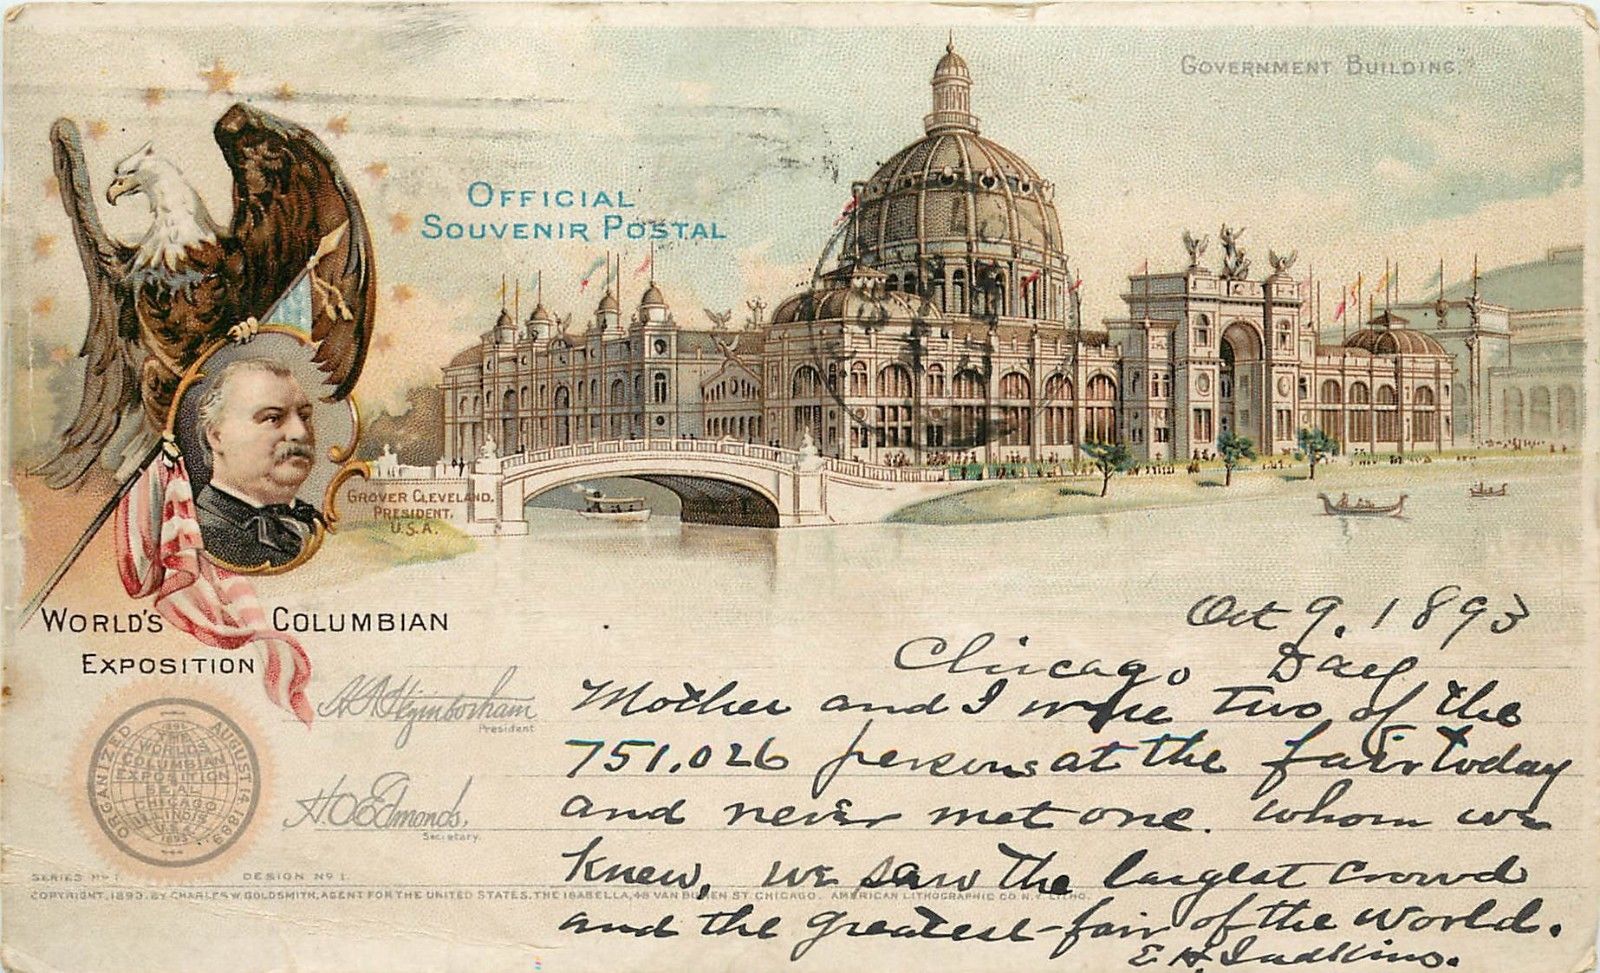 GOVERNMENT BUILDING.
OFFICIAL
SOUVENIR POSTAL
GROVER CLEVELAND.
PRESIDENT,
U.S.A.
WORLD'S COLUMBIAN
EXPOSITION
Oct 9. 1893
Chicago Day
Mother and I were two of the
751,026 persons at the fair today
and never met one. whom we
knew, we saw the largest crowd
and the greatest fair of the world.
E. H. Judkins.
President
H.O. Edmonds,
Secretary.
ORGANIZED AUGUST 14 1889
THE
WORLD'S
COLUMBIAN
EXPOSITION
SEAL
CHICAGO
ILLINOIS
SERIES Nº 1. DESIGN Nº 1.
COPYRIGHT, 1893, BY CHARLES W. GOLDSMITH, AGENT FOR THE UNITED STATES, THE ISABELLA, 48 VAN BUREN ST. CHICAGO. AMERICAN LITHOGRAPHIC CO. N.Y. LITHO.